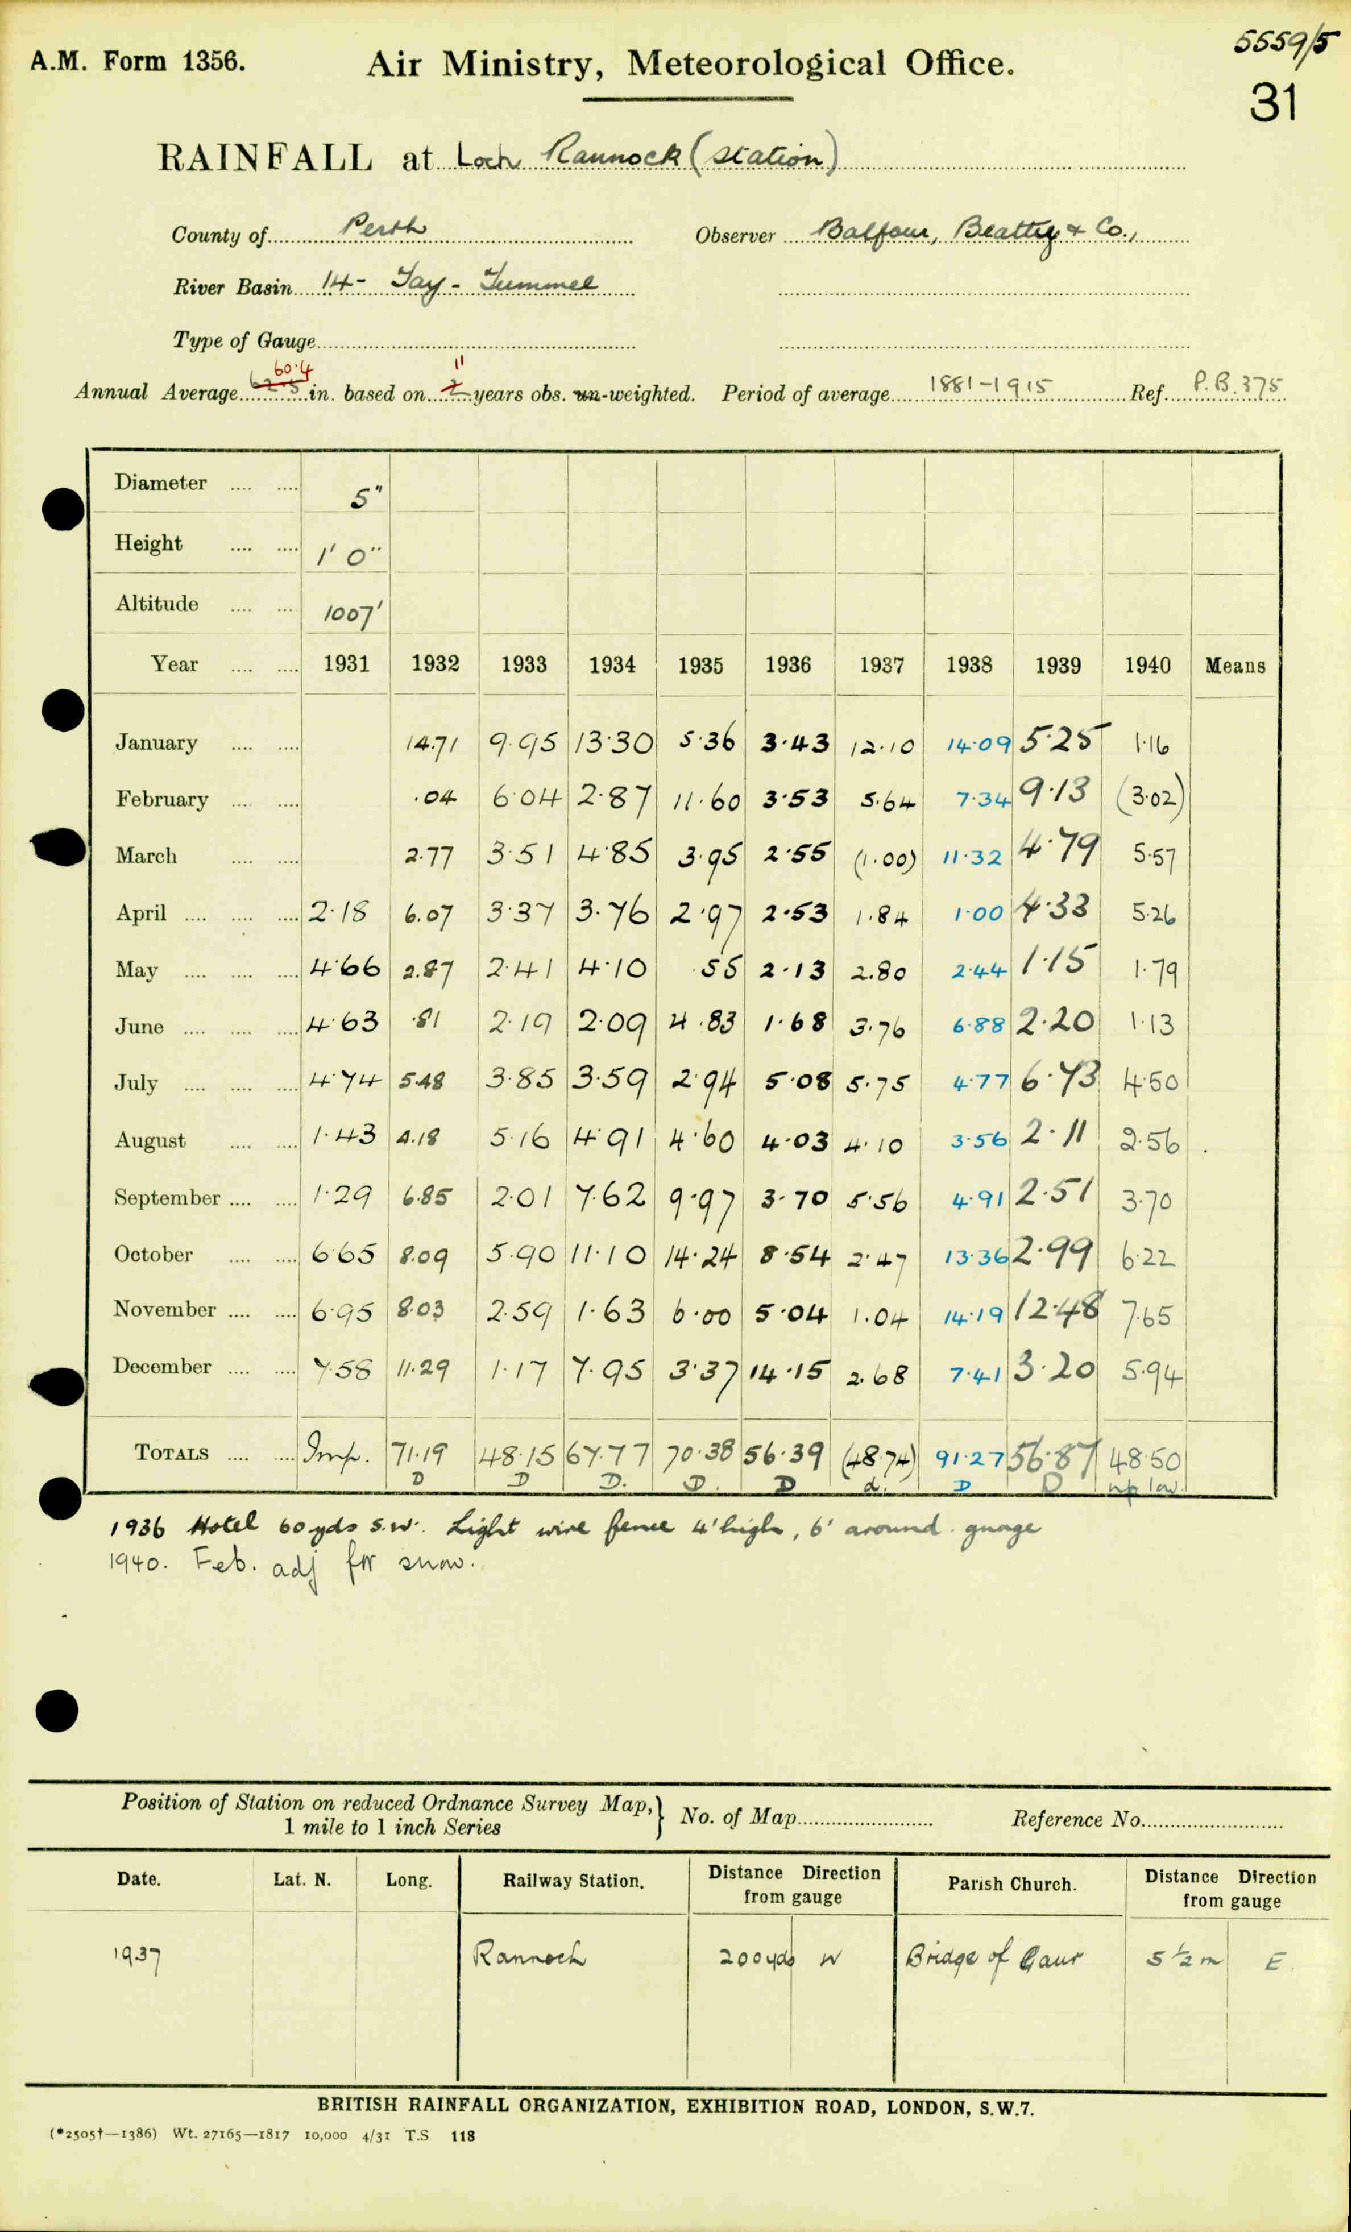 5559/5
A.M. Form 1356. Air Ministry, Meteorological Office.
31
RAINFALL at Loch Rannock (Station)
County of Perth Observer Balfour, Beatty & Co.,
River Basin 14 - Tay - Tummel
Type of Gauge
60.4 11
Annual Average 62.5 in. based on 2 years obs. un-weighted. Period of average 1881-1915 Ref. P.B.375
Diameter 5"
Height 1' 0"
Altitude 1007'
Year 1931 1932 1933 1934 1935 1936 1937 1938 1939 1940 Means
January 14.71 9.95 13.30 5.36 3.43 12.10 14.09 5.25 1.16
February .04 6.04 2.87 11.60 3.53 5.64 7.34 9.13 (3.02)
March 2.77 3.51 4.85 3.95 2.55 (1.00) 11.32 4.79 5.57
April 2.18 6.07 3.37 3.76 2.97 2.53 1.84 1.00 4.33 5.26
May 4.66 2.87 2.41 4.10 .55 2.13 2.80 2.44 1.15 1.79
June 4.63 .81 2.19 2.09 4.83 1.68 3.76 6.88 2.20 1.13
July 4.74 5.48 3.85 3.59 2.94 5.08 5.75 4.77 6.73 4.50
August 1.43 4.18 5.16 4.91 4.60 4.03 4.10 3.56 2.11 2.56
September 1.29 6.85 2.01 7.62 9.97 3.70 5.56 4.91 2.51 3.70
October 6.65 8.09 5.90 11.10 14.24 8.54 2.47 13.36 2.99 6.22
November 6.95 8.03 2.59 1.63 6.00 5.04 1.04 14.19 12.48 7.65
December 7.58 11.29 1.17 7.95 3.37 14.15 2.68 7.41 3.20 5.94
TOTALS Imp. 71.19 48.15 67.77 70.38 56.39 (48.74) 91.27 56.87 48.50
D D D. D. D d. D D up low
1936 Hotel 60 yds S.W. Light wire fence 4' high, 6' around guage
1940. Feb. adj for snow.
Position of Station on reduced Ordnance Survey Map,} No. of Map Reference No.
1 mile to 1 inch Series
Date. Lat. N. Long. Railway Station. Distance Direction from gauge Parish Church. Distance Direction from gauge
1937 Rannoch 200yds W Bridge of Gaur 5 1/2 m E.
BRITISH RAINFALL ORGANIZATION, EXHIBITION ROAD, LONDON, S.W.7.
(*2505†—1386) Wt. 27165—1817 10,000 4/31 T.S 118